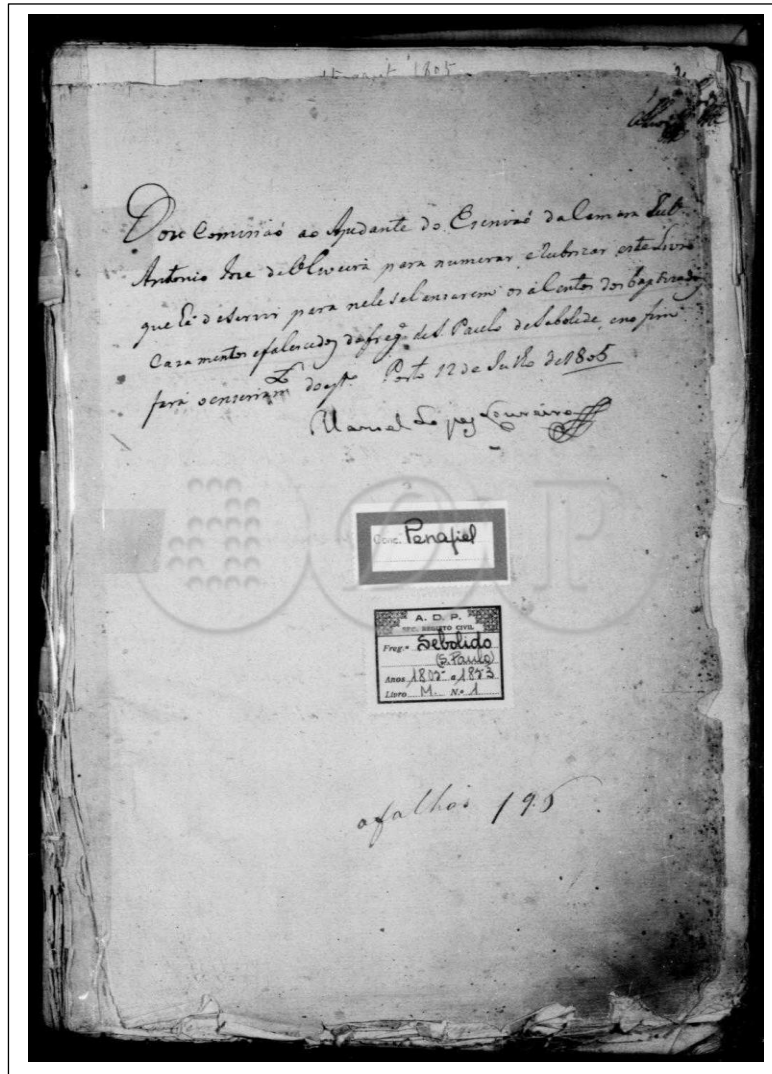 15 1805
Dou Comissaõ ao Ajudante do Escrivaõ da Camara
Antonio Jose de Olíveira para numerar e rubricar este Livro
que hé de servir para nele se lansarem os asentos dos Baptizados
Cazamentos e falecidos da freg.ª de S. Paulo de Sebolide, e no fim
fará o enseriam.to do est.º Porto 12 de Julho de 1805
Manoel Lopes Loureiro
Conc. Penafiel
A. D. P.
SEC. REGISTO CIVIL
Freg.ª Sebolido
(S. Paulo)
Anos 1805 a 1853
Livro M. N.º 1
a folhas 195